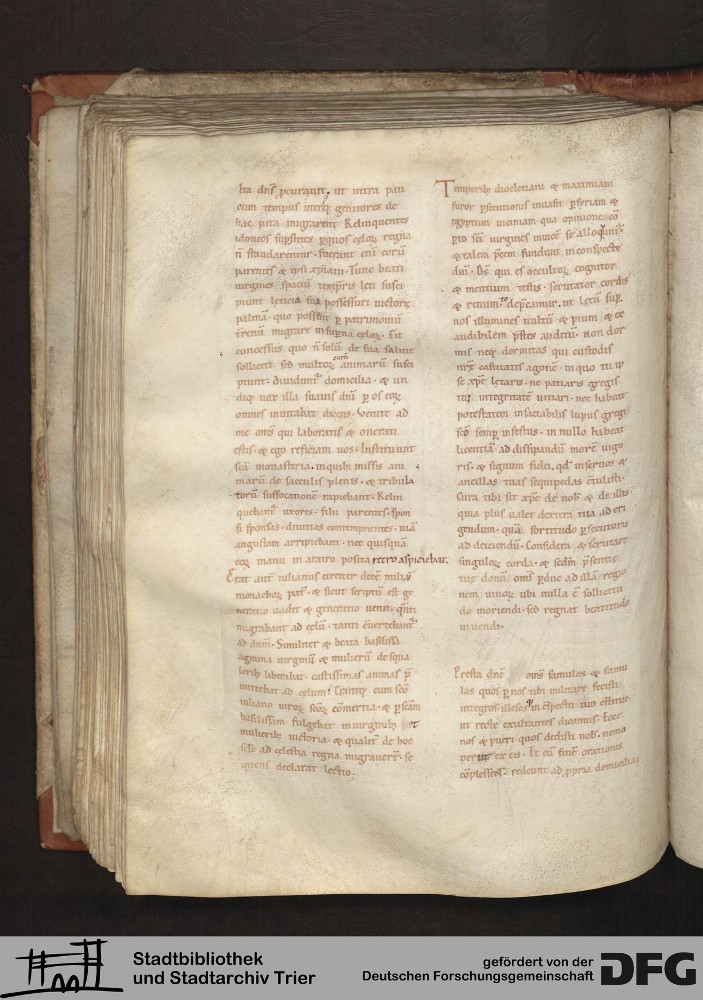 ita dnſ pcurauit. ut intra pau
cum tempus utriq; genitores de
hac uita migrarent. Relinquentes
idoneos ſupſtites p quos celoꝝ regna
n̄ fraudarentur. fuerant enī eorū
parentes & ipsi xpiani. Tunc beati
uirgines spaciū temporis leti susci
piunt leticia sua possessuri uictorię
palmā. quo possent p patrimoniū
migrare in supna celoꝝ. Fit
concessus quo n̄ solū de sua salute
solliciti sed multoꝝ curā animarū susci
piunt. diuidunt domicilia. & un
diq; uox illa suauis dnī p os eoꝝ
omnes inuitabat dicens. Venite ad
me oms qui laboratis & onerati
estis. & ego reficiam uos. Instituunt
scā monasteria. in quib; missis ani
marū de saeculis plenis. & tribula
torū suffocatione rapiebant. Relin
quebant uxores. filii parentes. spon
si sponsas. diuitias contempnentes. uiā
angustam arripiebant. nec quisquā
eoꝝ manu in aratro posita retro aspiciebat.
Erat aut iulianus circiter decē miliū
monachoꝝ pat. & sicut scriptū est ge
neratio uadit & generatio uenit. qnti
migrabant ad celū. tanti cuertebant
ad dnm. Similiter & beata basilissa
agmina uirginū & mulierū de squa
lorib; liberabat. castissimas animas p
mittebat ad celum. cum scō
iuliano uiroꝝ scoꝝ cōmertia. & p scam
basilissam fulgebat in uirginib; et
mulierib; uictoria. & qualit de hoc
sclo ad celestia regna migrauert. se
quens declarat lectio.
Temporib; diocletiani & maximiani
furor psecutionis inuasit psyriam &
egyptum uicinam. qua opinione cō
pto sci uirgines inuicē se alloquunt.
& talem pcem fundunt in conspectu
dni. Ds qui es occultoꝝ cognitor
& mentium testis. scrutator cordis
& renum. te depcamur. ut letū sup
nos illumines uultū & pium & ex
audibilem pstes auditū. non dor
mis neq; dormitas qui custodis
nrē castitatis agonē. in quo tu ip
se xpe letaris. ne patiaris gregis
tui integritatē uitiari. nec habeat
potestatem insaciabilis lupus gregi
scō semp infestus. in nullo habeat
licentiā ad dissipandū morē uigo
ris. & signum fidei. qd inseruos &
ancillas tuas sequipedas ctulisti.
Cura tibi sit xpe de nob & de illis.
quia plus ualet dextera tua ad eri
gendum. quā fortitudo psecutoris
ad deiciendū. Considera & scrutare
singuloꝝ corda. & scdm psentie
tue donū oms pduc ad illā regio
nem uiuoꝝ ubi nulla ē sollicitu
do moriendi. sed regnat beatitudo
uiuendi.
Presta dne oms famulos & famu
las quos p nos tibi militare fecisti
integros. illesos in cspectu tuo cstitue.
ut recte exultantes dicamus. Ecce
nos & pueri quos dedisti nob. nemo
periit ex eis. Et cū finē orationis
cōplessent. redeunt ad ppria domicilia.
Stadtbibliothek
und Stadtarchiv Trier
gefördert von der
Deutschen Forschungsgemeinschaft
DFG